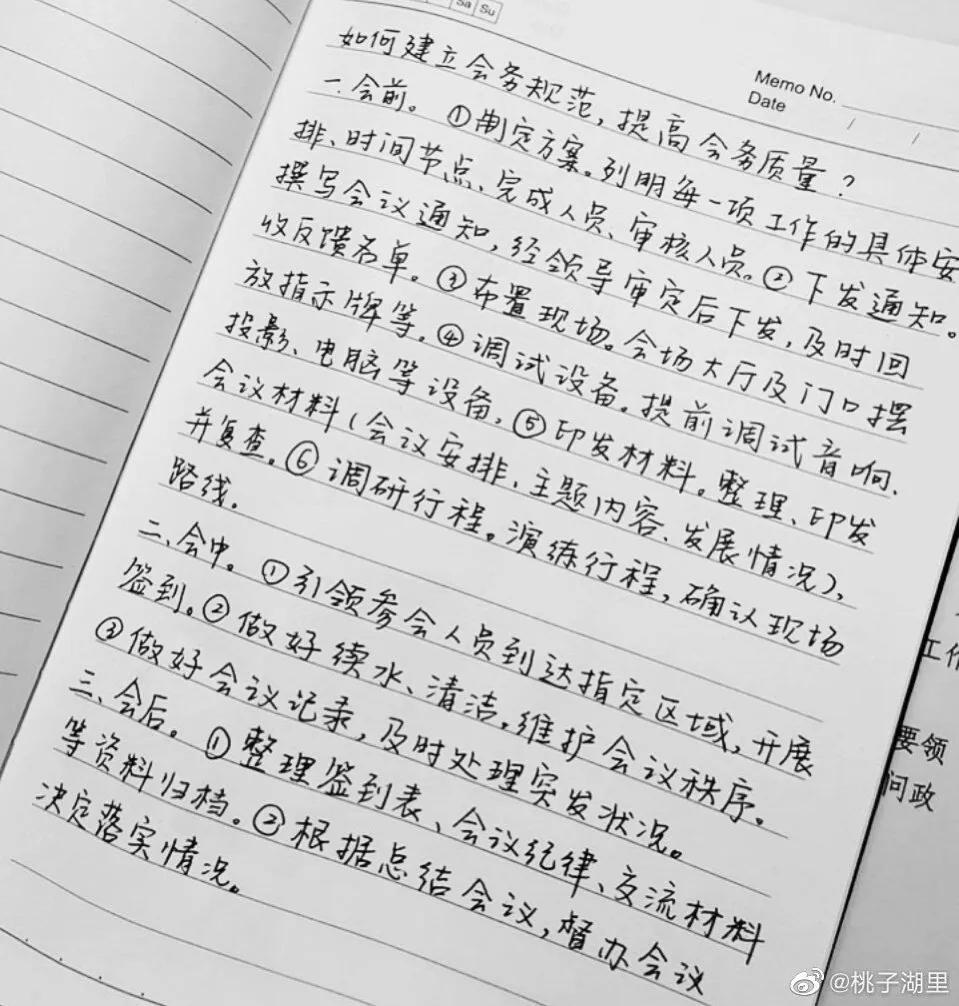 Sa Su
Memo No.
Date / /
如何建立会务规范，提高会务质量？
一、会前。①制定方案。列明每一项工作的具体安
排、时间节点、完成人员、审核人员。②下发通知。
撰写会议通知，经领导审定后下发，及时回
收反馈名单。③布置现场。会场大厅及门口摆
放指示牌等。④调试设备。提前调试音响、
投影、电脑等设备，⑤印发材料。整理、印发
会议材料（会议安排、主题内容、发展情况），
并复查。⑥调研行程。演练行程，确认现场
路线.
二、会中。①引领参会人员到达指定区域，开展
签到。②做好续水、清洁。维护会议秩序。
③做好会议记录，及时处理突发状况。
三、会后。①整理签到表、会议纪律、交流材料
等资料归档。②根据总结会议，督办会议
决定落实情况。
工作
要领
问政
@桃子湖里